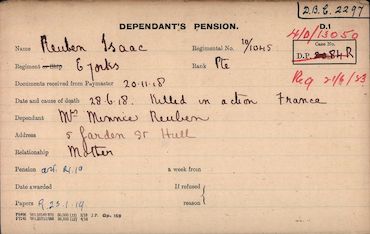 D.B.E. 2297
DEPENDANT'S PENSION.
D.1
4/D/13050
Name Reuben Isaac Regimental No. 10/1045
Case No.
D.P. 2084 R
Regiment or Ship E Yorks Rank Pte
Reg 21/6/23
Documents received from Paymaster 20.11.18
Date and cause of death 28.6.18. Killed in action France
Dependant Mrs Minnie Reuben
Address 5 Garden St Hull
Relationship Mother
Pension a week from
Date awarded If refused
Papers 23.1.19 reason